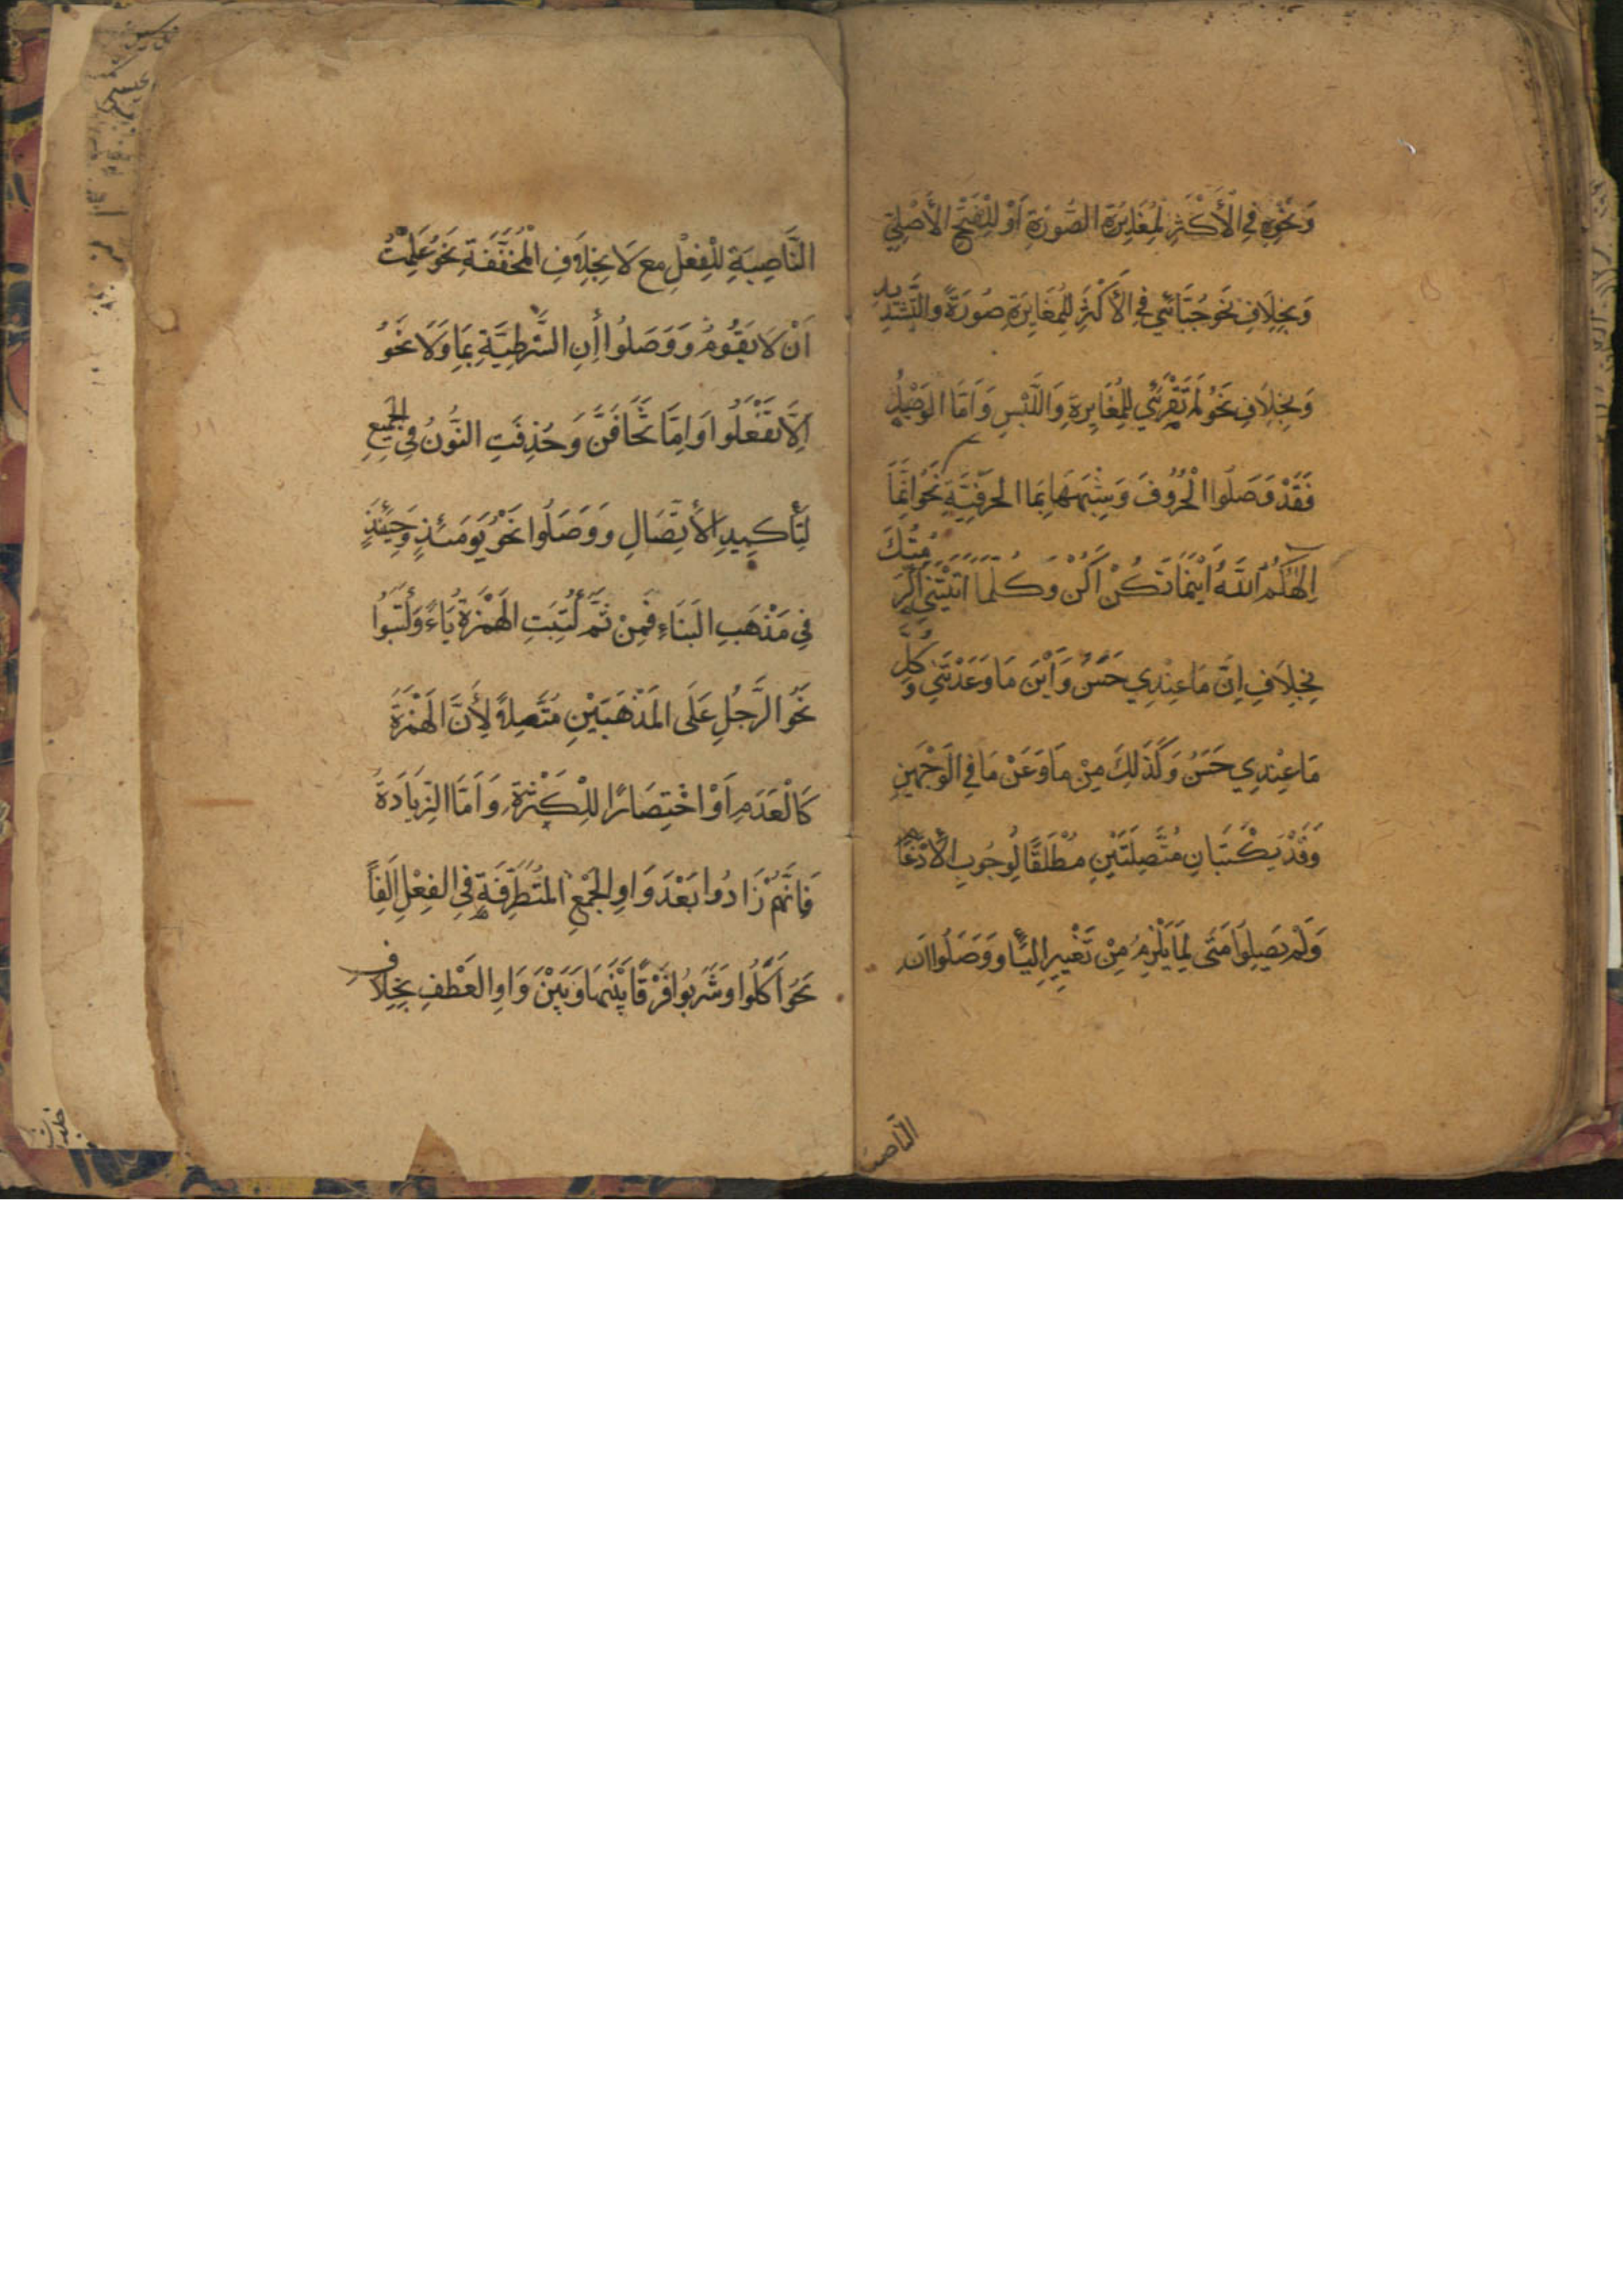 وَنَحْوِهِ فِي الْأَكْثَرِ لِمُغَايَرَةِ الصُّورَةِ أَوْ لِلْفَتْحِ الْأَصْلِيِّ
وَبِخِلَافِ نَحْوِ حِنَّائِي فِي الْأَكْثَرِ لِلْمُغَايَرَةِ صُورَةً وَالتَّشْدِيدِ
وَبِخِلَافِ نَحْوِ لَمْ تَقْرَئِي لِلْمُغَايَرَةِ وَاللَّبْسِ وَأَمَّا الْوَصْلُ
فَقَدْ وَصَلُوا الْحُرُوفَ وَشِبْهَهَا بِمَا الْحَرْفِيَّةِ نَحْوُ إِنَّمَا
إِلٰهُكُمُ اللَّهُ أَيْنَمَا تَكُنْ أَكُنْ وَكُلَّمَا أَتَيْتَنِي أَكْرَمْتُكَ
بِخِلَافِ إِنَّ مَا عِنْدِي حَسَنٌ وَأَيْنَ مَا وَعَدْتَنِي وَكُلُّ
مَا عِنْدِي حَسَنٌ وَكَذَلِكَ مِنْ مَا وَعَنْ مَا فِي الْوَجْهَيْنِ
وَقَدْ يُكْتَبَانِ مُتَّصِلَتَيْنِ مُطْلَقًا لِوُجُوبِ الْأِدْغَامِ
وَلَمْ يَصِلُوا مَتَى لِمَا يَلْزَمُ مِنْ تَغْيِيرِ الْيَاءِ وَوَصَلُوا أَنْ
الناصبة
النَّاصِبَةِ لِلْفِعْلِ مَعَ لَا بِخِلَافِ الْمُخَفَّفَةِ نَحْوُ عَلِمْتُ
أَنْ لَا يَقُومُ وَوَصَلُوا إِنِ الشَّرْطِيَّةِ بِمَا وَلَا نَحْوُ
إِلَّا تَفْعَلُوا وَإِمَّا تَخَافَنَّ وَحُذِفَتِ النُّونُ فِي الْجَمِيعِ
لِتَأْكِيدِ الْأِتِّصَالِ وَوَصَلُوا نَحْوَ يَوْمَئِذٍ وَحِينَئِذٍ
فِي مَذْهَبِ الْبِنَاءِ فَمِنْ ثَمَّ كُتِبَتِ الْهَمْزَةُ يَاءً وَكَتَبُوا
نَحْوَ الرَّجُلِ عَلَى الْمَذْهَبَيْنِ مُتَّصِلَةً لِأَنَّ الْهَمْزَةَ
كَالْعَدَمِ أَوِ اخْتِصَارًا لِلْكَثْرَةِ وَأَمَّا الزِّيَادَةُ
فَإِنَّهُمْ زَادُوا بَعْدَ وَاوِ الْجَمْعِ الْمُتَطَرِّفَةِ فِي الْفِعْلِ أَلِفًا
نَحْوُ أَكَلُوا وَشَرِبُوا فَرْقًا بَيْنَهَا وَبَيْنَ وَاوِ الْعَطْفِ بِخِلَافِ